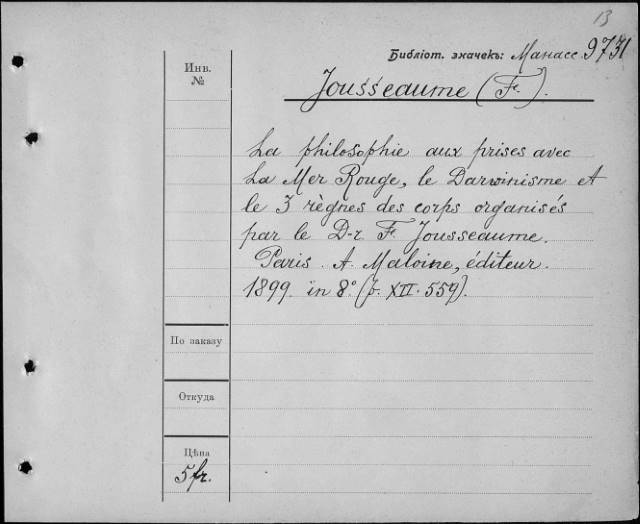 13
Библіот. значекъ: Манасс. 9731
Инв.
№
Jousseaume (F.).
La philosophie aux prises avec
La Mer Rouge, le Darwinisme et
le 3 règnes des corps organisés
par le D-r. F. Jousseaume.
Paris. A. Maloine, éditeur.
1899. in 8° (p. XII. 559).
По заказу
Откуда
Цѣна
5 fr.